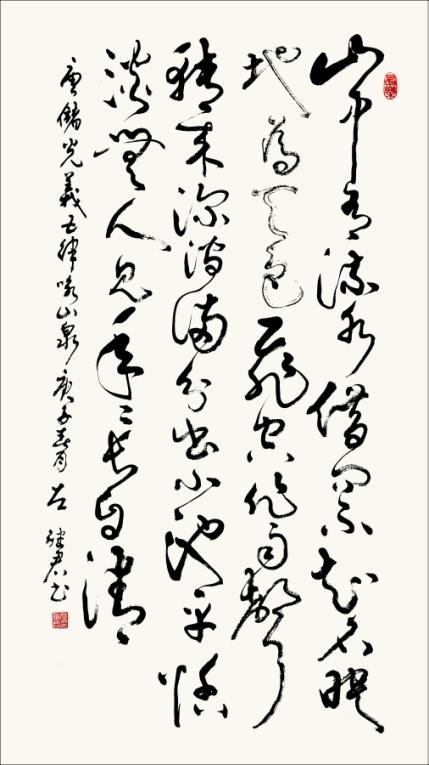 山中有流水借問不知名映
地為天色飛空作雨聲
轉來深澗滿分出小池平恬
淡無人見年々長自清
唐儲光羲五律咏山泉庚子春月左